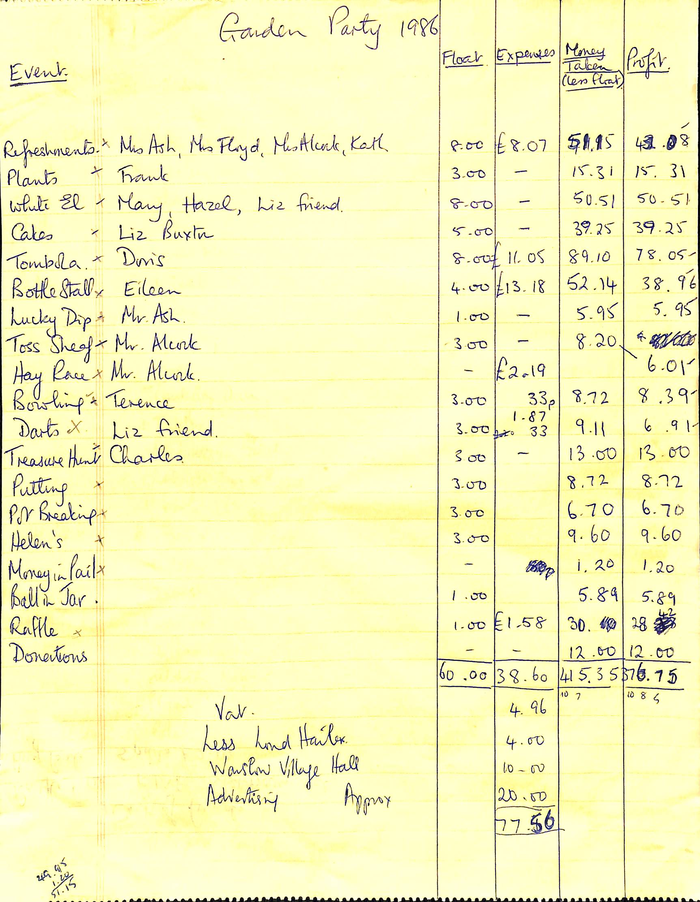 Garden Party 1986
Event. Float Expenses Money Taken (less float) Profit.
Refreshments. x Mrs Ash, Mrs Floyd, Mrs Alcock, Kath 8.00 £8.07 51.15 43.08
Plants x Frank 3.00 - 15.31 15.31
White El x Mary, Hazel, Liz friend. 8.00 - 50.51 50.51
Cakes x Liz Buxton 5.00 - 39.25 39.25
Tombola. x Doris 8.00 £11.05 89.10 78.05
Bottle Stall x Eileen 4.00 £13.18 52.14 38.96
Lucky Dip x Mr. Ash. 1.00 - 5.95 5.95
Toss Sheaf x Mr. Alcock 3.00 - 8.20
Hay Race x Mr. Alcock. - £2.19 6.01
Bowling x Terence 3.00 33p 8.72 8.39
1.87
Darts x Liz friend. 3.00 33 9.11 6.91
Treasure Hunt x Charles 3.00 - 13.00 13.00
Putting x 3.00 8.72 8.72
Pot Breaking x 3.00 6.70 6.70
Helen's x 3.00 9.60 9.60
Money in Pail x - 1.20 1.20
Ball in Jar. 1.00 5.89 5.89
Raffle x 1.00 £1.58 30. 28 42
Donations - - 12.00 12.00
60.00 38.60 415.35 376.75
10 7 10 8 5
Vat. 4.96
Less 4.00
Winslow Village Hall 10-00
Advertising Approx 20.00
77.56
49.95
1.20
51.15